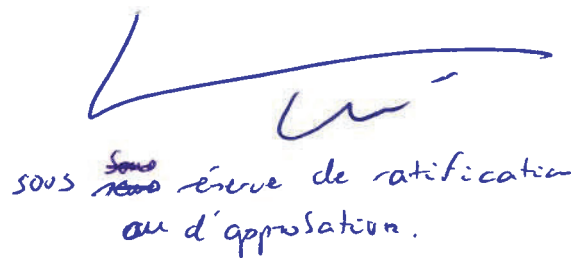 sous réserve de ratification
ou d'approbation.